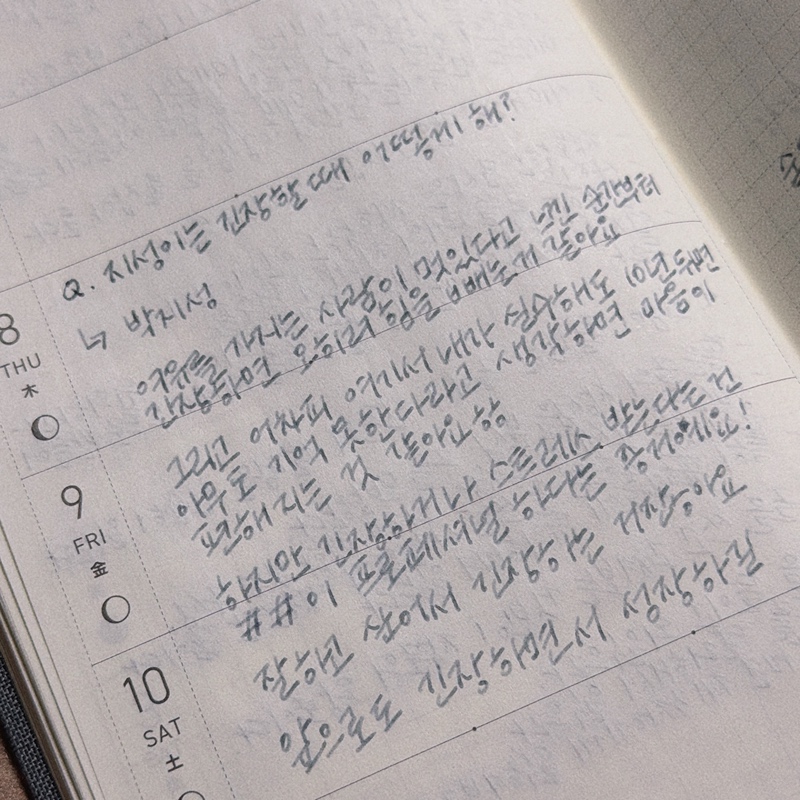 Q. 지성이는 긴장할 때 어떻게 해?
↳ 박지성
여유를 가지는 사람이 멋있다고 느낀 순간부터
긴장하면 오히려 힘을 빼는게 같아요
그리고 어차피 여기서 내가 실수해도 10년 뒤면
아무도 기억 못한다라고 생각하면 마음이
편해지는 것 같아요
하지만 긴장하거나 스트레스 받는다는 건
##이 프로페셔널 하다는 증거에요!
잘하고 싶어서 긴장하는 거잖아요
앞으로도 긴장하면서 성장하길
8
THU
木
9
FRI
金
10
SAT
土